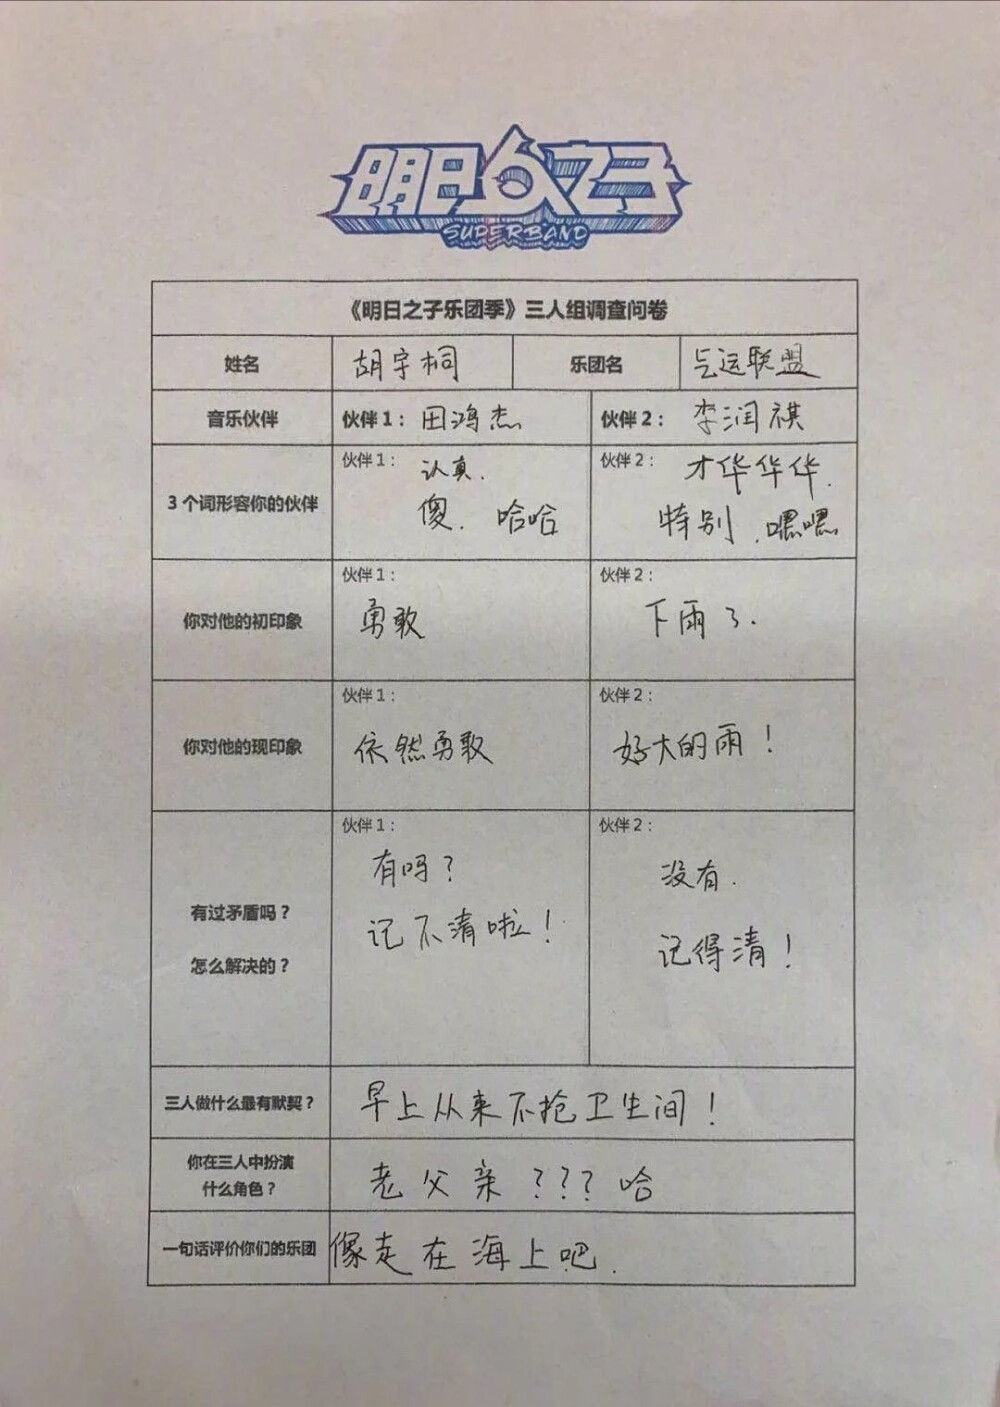 明日之子
SUPERBAND
《明日之子乐团季》三人组调查问卷
姓名 胡宇桐 乐团名 气运联盟
音乐伙伴 伙伴1：田鸿杰 伙伴2：李润祺
3个词形容你的伙伴
伙伴1：认真.
傻. 哈哈
伙伴2：才华华华.
特别.嘿嘿
你对他的初印象
伙伴1：
勇敢
伙伴2：
下雨了.
你对他的现印象
伙伴1：
依然勇敢
伙伴2：
好大的雨！
有过矛盾吗？
怎么解决的？
伙伴1：
有吗？
记不清啦！
伙伴2：
没有.
记得清！
三人做什么最有默契？ 早上从来不抢卫生间！
你在三人中扮演
什么角色？
老父亲？？？哈
一句话评价你们的乐团 像走在海上吧.